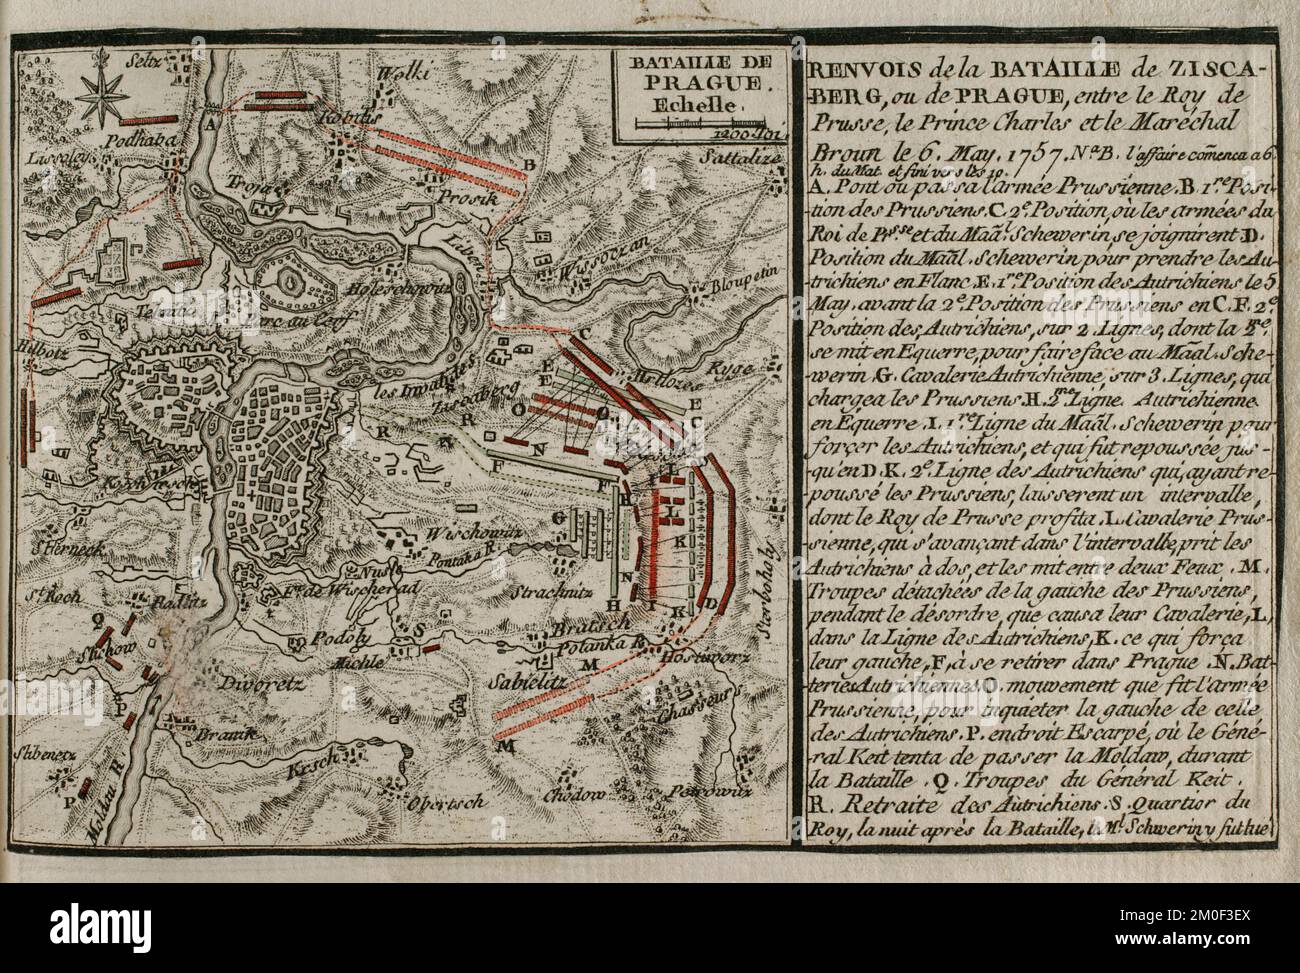 BATAILLE DE
PRAGUE.
Echelle.
1200 Toi.
Seltz
Wolki
Kobilis
A
Podhaba
Lissoleys
Troja
Prosik
B
Sattalize
Lieben
Wissoczan
Bloupetin
Holeschowitz
Parc au Cerf
Hilbotz
les Invalides
Ziscaberg
C
Kyge
E
E
E
C
O
O
R
R
N
F
F
H
G
I
L
L
K
N
H
I
K
D
Wischowitz
Pontaka R.
Nusle
Ft. de Wischerad
Strachnitz
Sterboholy
St. Roch
Radlitz
Q
Slichow
Podoly
Michle
S
Bratsch
Potanka R.
M
Hostiworz
Sabielitz
Chasseurs
Dworetz
P
Branik
M
Krsch
Slibenetz
P
Moldau R.
Obertsch
Chodow
Petrowitz
RENVOIS de la BATAILLE de ZISCA-
BERG, ou de PRAGUE, entre le Roy de
Prusse, le Prince Charles et le Maréchal
Broun le 6. May. 1757. Na B. l'affaire comença a 6
h. du Mat. et fini vers les 10.
A. Pont où passa l'armée Prussienne. B. 1re Posi-
tion des Prussiens. C. 2e Position où les armées du
Roi de Prsse et du Maāl. Schewerin se joignirent D.
Position du Maāl. Schewerin pour prendre les Au-
trichiens en Flanc. E. 1re Position des Autrichiens le 5
May. avant la 2e Position des Prussiens en C. F. 2e
Position des Autrichiens, sur 2. Lignes, dont la 2e
se mit en Equerre, pour faire face au Maāl. Sche-
werin G. Cavalerie Autrichienne, sur 3. Lignes, qui
chargea les Prussiens. H. 2e Ligne. Autrichienne
en Équerre. I. 1re Ligne du Maāl. Schewerin pour
forçer les Autrichiens, et qui fut repoussée jus-
qu'en D. K. 2e Ligne des Autrichiens qui, ayant re-
poussé les Prussiens, laisserent un intervalle,
dont le Roy de Prusse profita. L. Cavalerie Prus-
sienne, qui s'avançant dans l'intervalle, prit les
Autrichiens à dos, et les mit entre deux Feux. M.
Troupes détachées de la gauche des Prussiens,
pendant le désordre, que causa leur Cavalerie, L,
dans la Ligne des Autrichiens, K. ce qui força
leur gauche, F, à se retirer dans Prague. N. Bat-
teries Autrichiennes O. mouvement que fit l'armée
Prussienne, pour inquieter la gauche de celle
des Autrichiens. P. endroit Escarpé, où le Géné-
ral Keit tenta de passer la Moldaw, durant
la Bataille. Q. Troupes du Général Keit.
R. Retraite des Autrichiens. S. Quartier du
Roy, la nuit après la Bataille, le Ml Schwerin y fut tué
alamy
Image ID: 2M0F3EX
www.alamy.com